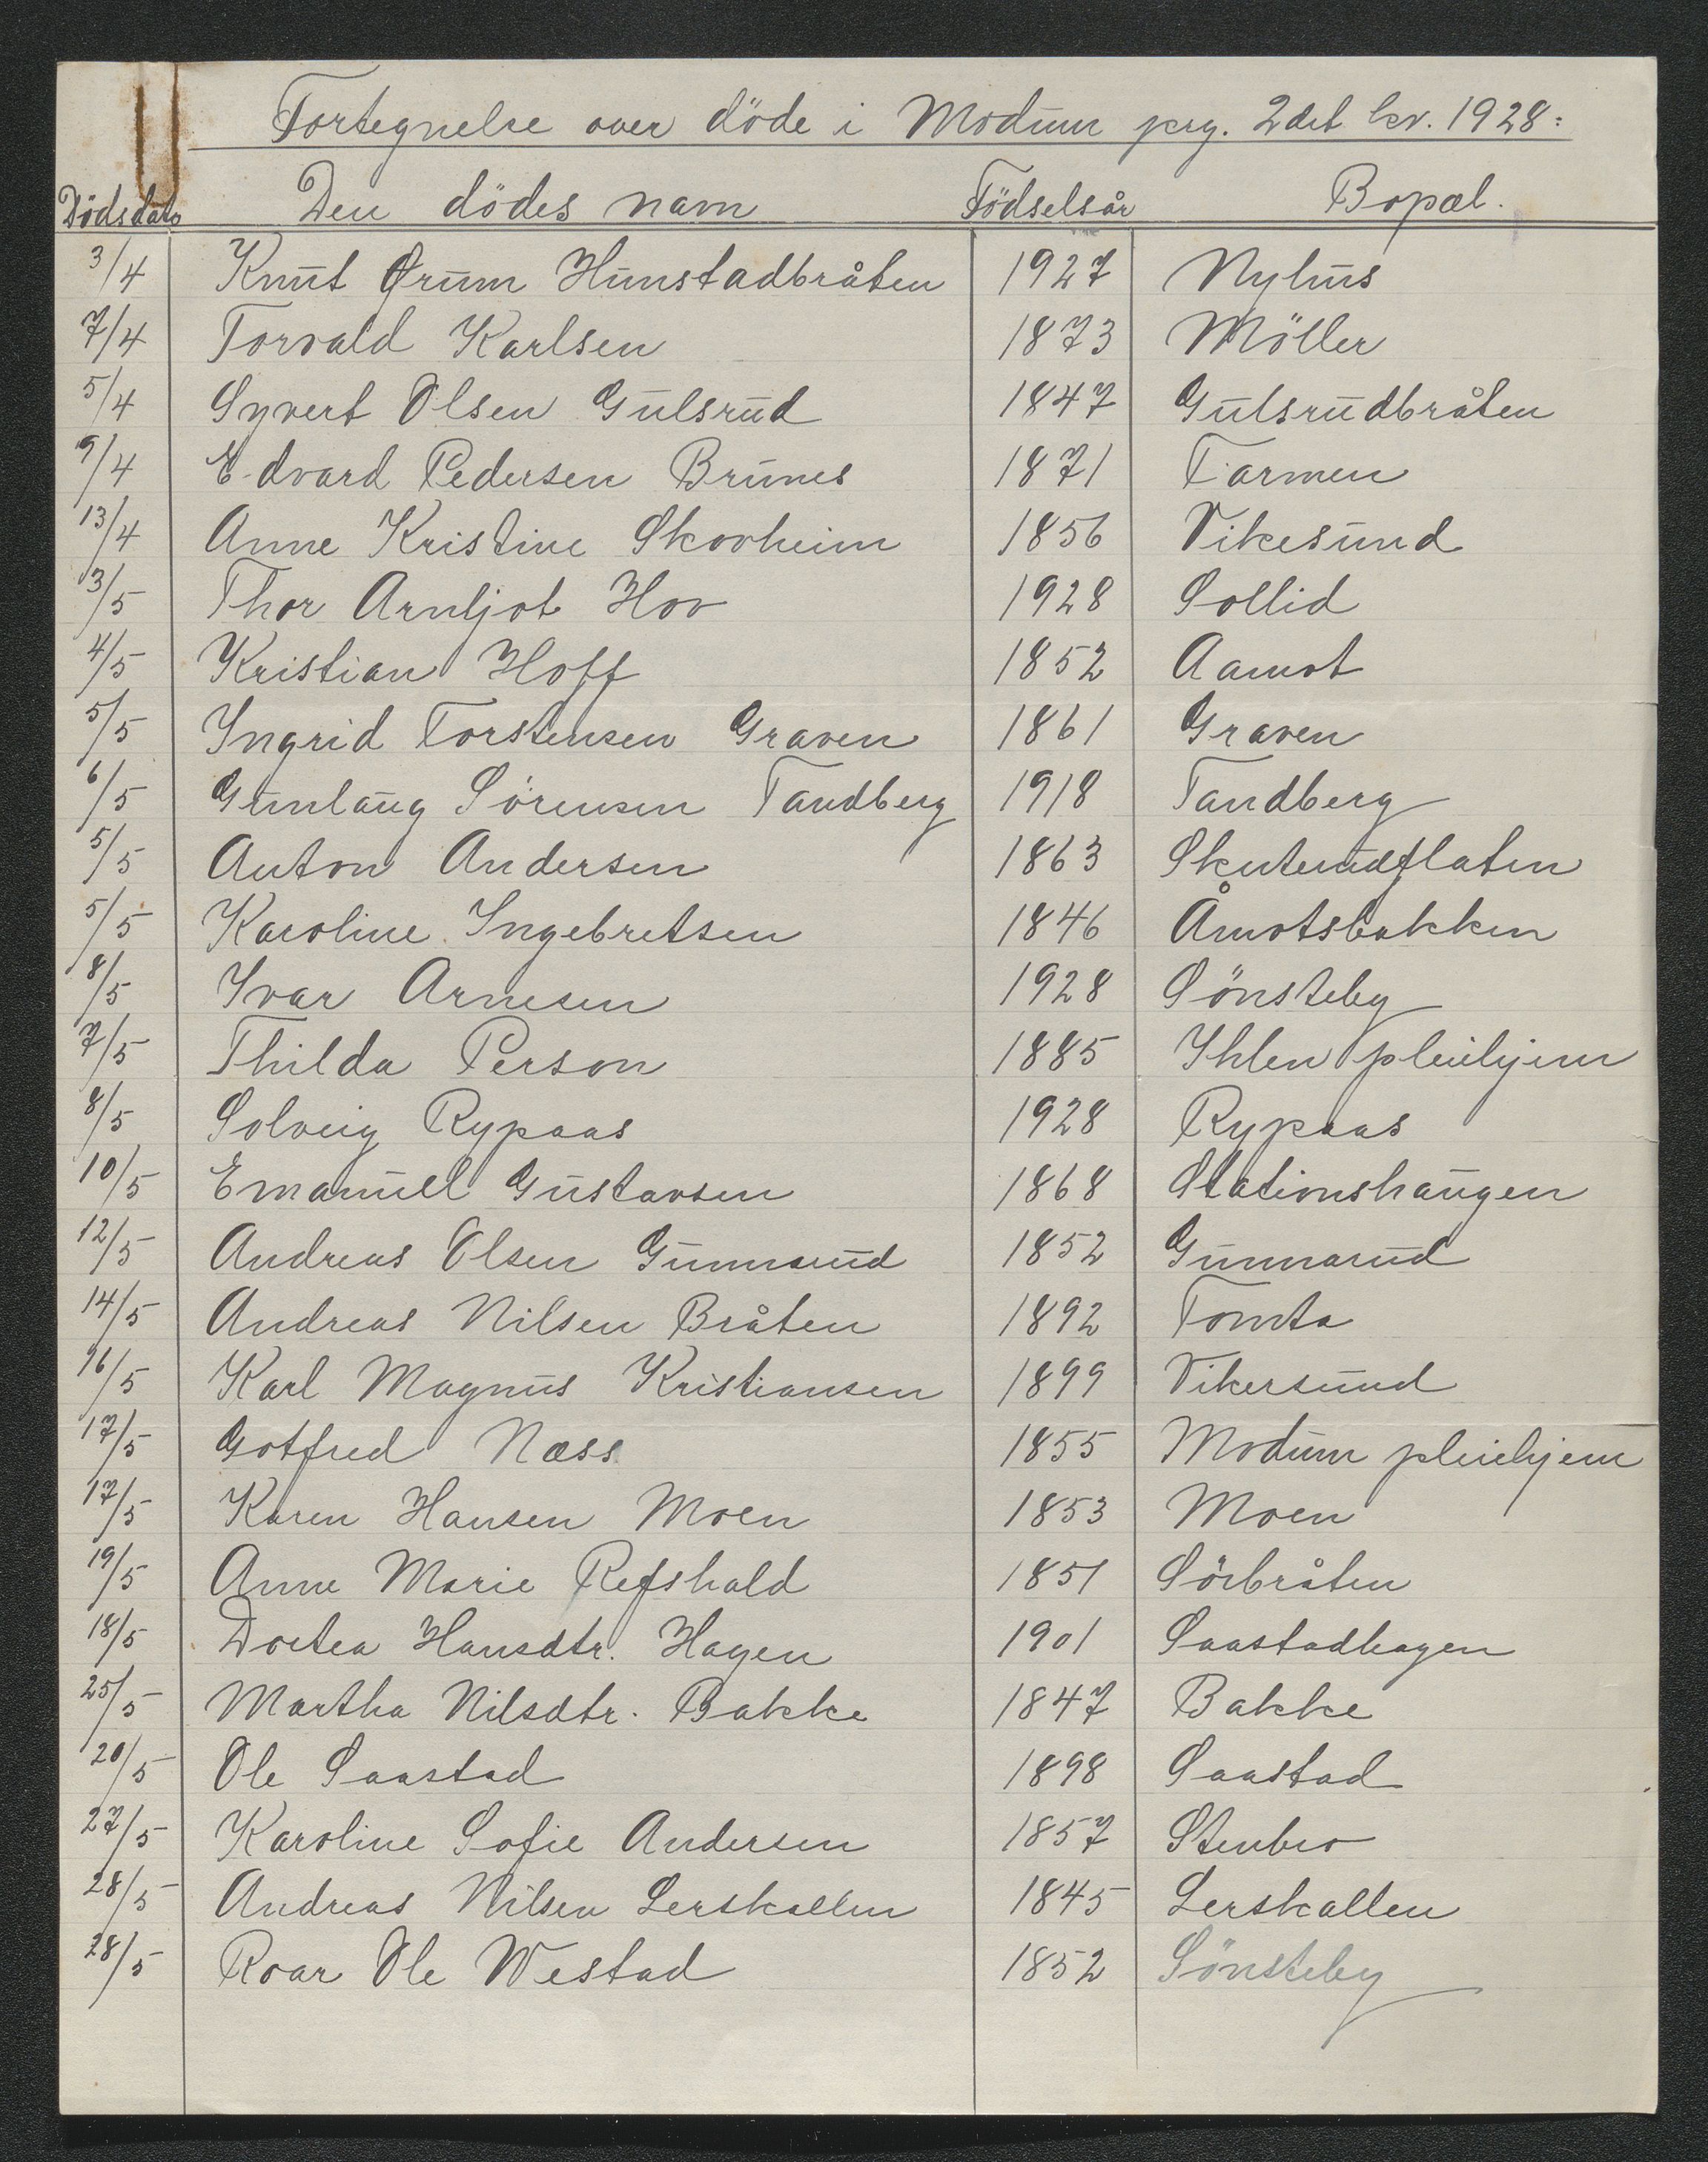 Fortegnelse over döde i Modum prg. 2det kv. 1928:
Dödsdato Den dödes navn Födselsår Bopæl.
3/4 Knut Ørum Hunstadbråten 1927 Nyhus
7/4 Torvald Karlsen 1873 Möller
5/4 Syvert Olsen Gulsrud 1847 Gulsrudbråten
9/4 Edvard Pedersen Brunes 1871 Tarmen
13/4 Anne Kristine Skovheim 1856 Vikesund
3/5 Thor Arnljot Hov 1928 Sollid
4/5 Kristian Hoff 1852 Aamot
5/5 Ingrid Torstensen Graven 1861 Graven
6/5 Gunlaug Sörensen Tandberg 1918 Tandberg
5/5 Anton Andersen 1863 Skuterudflaten
5/5 Karoline Ingebretsen 1846 Åmotsbakken
8/5 Ivar Arnesen 1928 Sönsteby
7/5 Thilda Person 1885 Ihlen pleiehjem
8/5 Solveig Rypaas 1928 Rypaas
10/5 Emanuel Gustavsen 1868 Stationshaugen
12/5 Andreas Olsen Gunnarud 1852 Gunnarud
14/5 Andreas Nilsen Bråten 1892 Tomta
16/5 Karl Magnus Kristiansen 1899 Vikersund
17/5 Gotfred Næss 1855 Modum pleiehjem
17/5 Karen Hansen Moen 1853 Moen
19/5 Anne Marie Refshald 1851 Sörbråten
18/5 Dortea Hansdtr. Hagen 1901 Saastadhagen
25/5 Martha Nilsdtr. Bakke 1847 Bakke
20/5 Ole Saastad 1898 Saastad
27/5 Karoline Sofie Andersen 1857 Stenbro
28/5 Andreas Nilsen Lerskallen 1845 Lerskallen
28/5 Roar Ole Westad 1852 Sönsteby